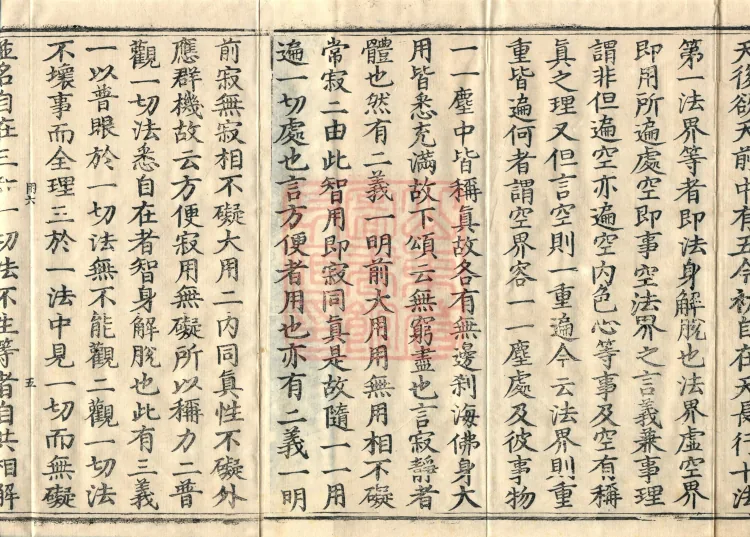 天後欲天前中有五今初自在天長行十法
第一法界等者即法身解脫也法界虛空界
即用所遍處空即事空法界之言義兼事理
謂非但遍空亦遍空內色心等事及空有稱
真之理又但言空則一重遍今云法界則重
重皆遍何者謂空界容一一塵處及彼事物
一一塵中皆稱真故各有無邊剎海佛身大
用皆悉充滿故下頌云無窮盡也言寂靜者
體也然有二義一明前大用用無用相不礙
常寂二由此智用即寂同真是故隨一一用
遍一切處也言方便者用也亦有二義一明
前寂無寂相不礙大用二內同真性不礙外
應群機故云方便寂用無礙所以稱力二普
觀一切法悉自在者智身解脫也此有三義
一以普眼於一切法無不能觀二觀一切法
不壞事而全理三於一法中見一切而無礙
五
並名自在三於一切法不生等者自共相解